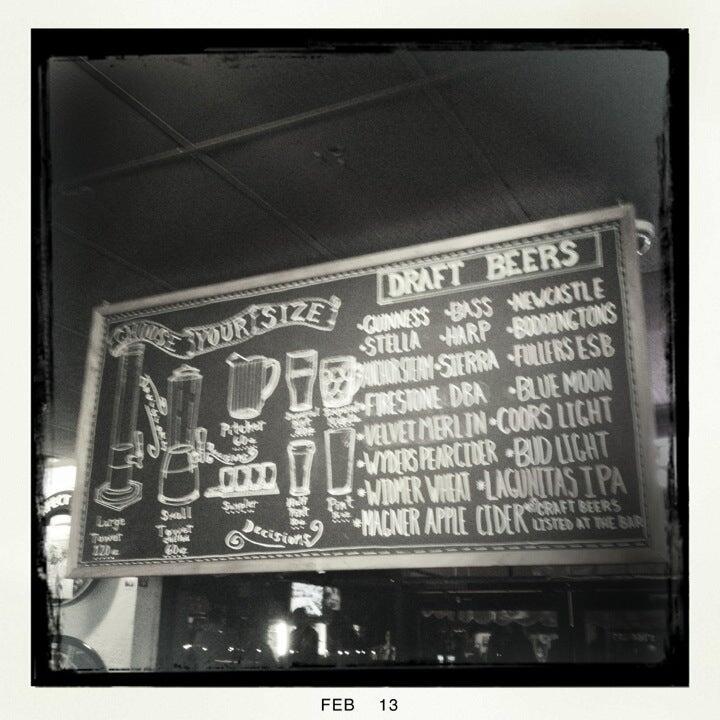 DRAFT BEERS
CHOOSE YOUR SIZE
•GUINNESS •BASS •NEWCASTLE
•STELLA •HARP •BODDINGTONS
•SIERRA •FULLERS ESB
•FIRESTONE DBA •BLUE MOON
•VELVET MERLIN •COORS LIGHT
•WYDERS PEAR CIDER •BUD LIGHT
•WIDMER WHEAT •LAGUNITAS IPA
•MAGNER APPLE CIDER *CRAFT BEERS
LISTED AT THE BAR
Pitcher
60oz
Sampler
Half
Pint
Pint
Large
Tower
120oz
Small
Tower
60oz
Decisions
FEB 13